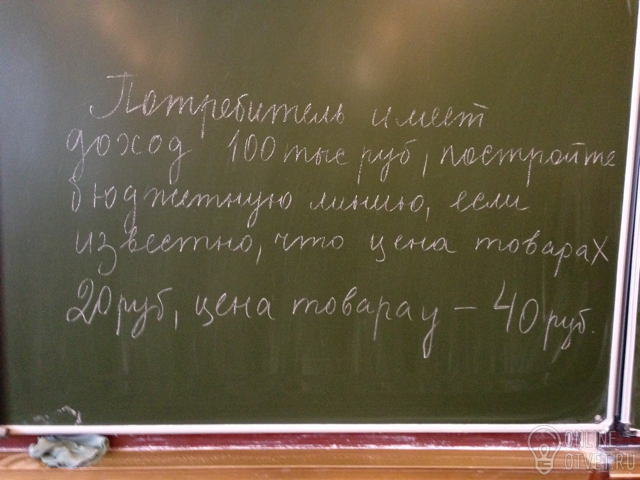 Потребитель имеет
доход 100 тыс руб, постройте
бюджетную линию, если
известно, что цена товара X
20 руб, цена товара y – 40 руб.
ONLINE
OTVET.RU